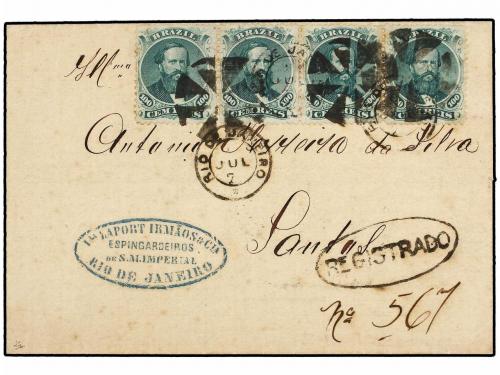 BRAZIL BRAZIL BRAZIL BRAZIL
100 CEM REIS 100 100 CEM REIS 100 CEM REIS 100 100 CEM REIS 100
Illmo
Antonio Ferreira da Silva
RIO DE JANEIRO
JUL
7
Santos
REGISTRADO
LAPORT IRMÃOS & CIA
ESPINGARDEIROS
DE S.M. IMPERIAL
RIO DE JANEIRO
No 567